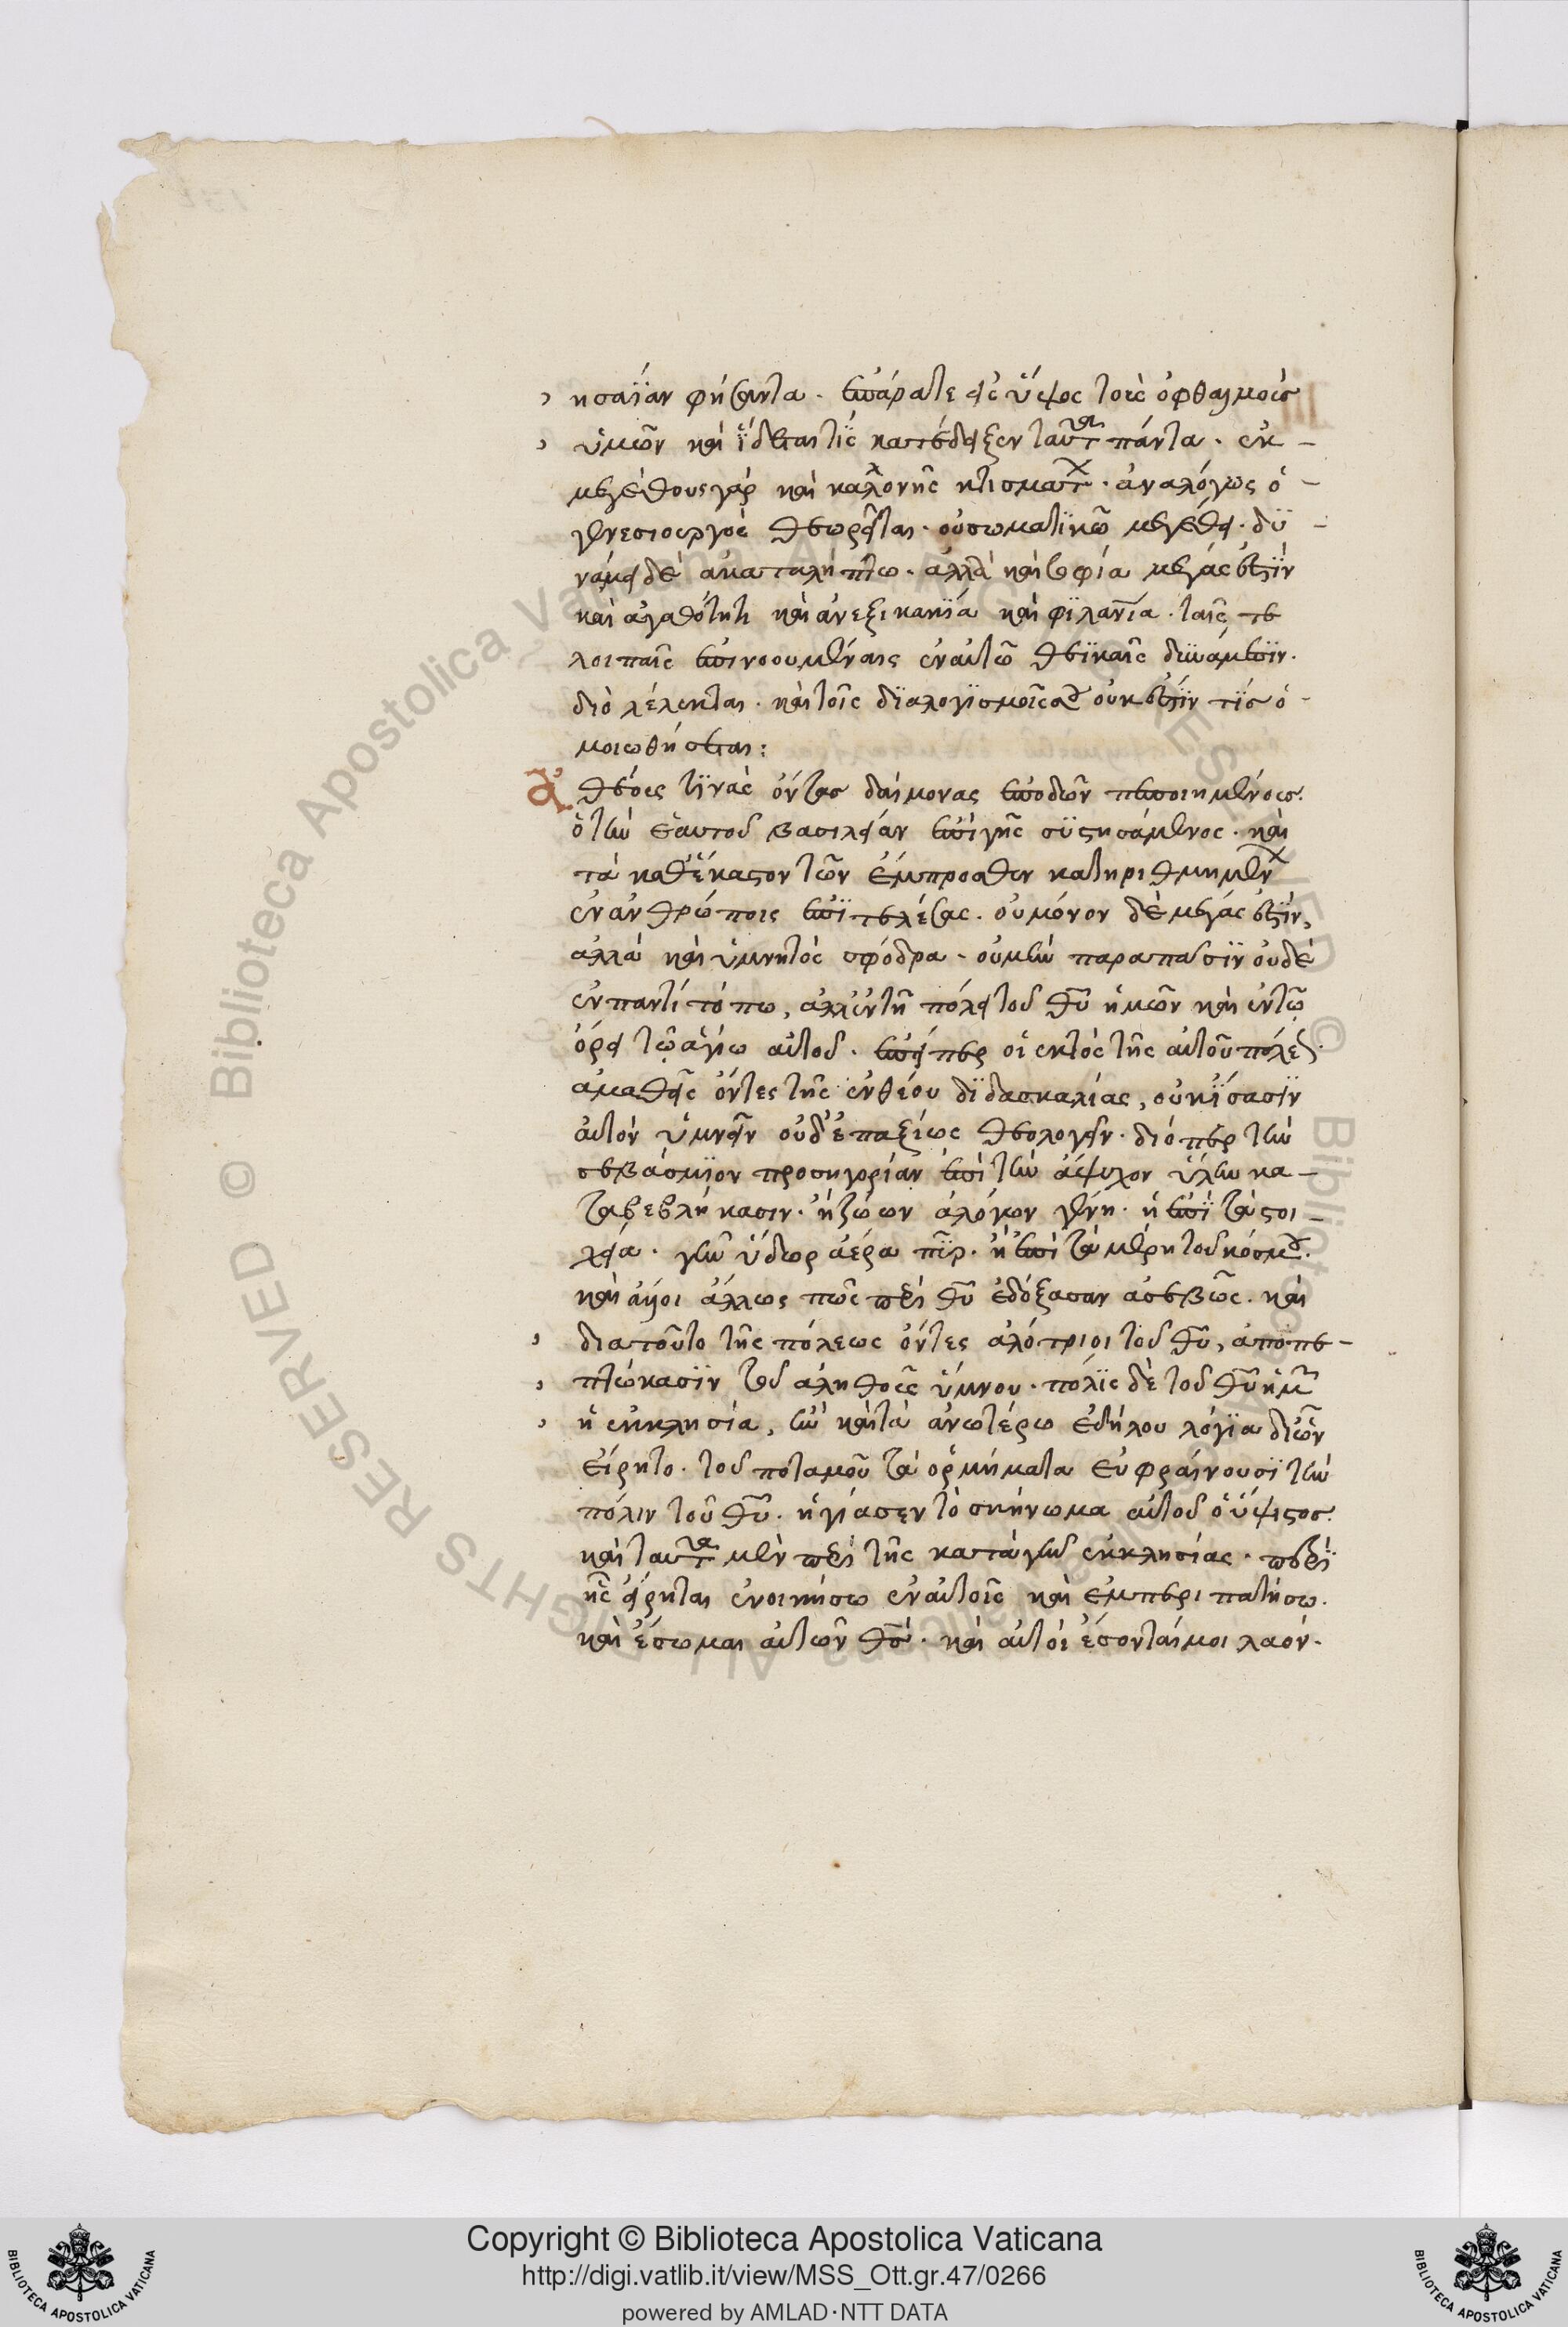 ησαΐαν φήσαντα. ἐπάρατε εἰς ὕψος τοὺς ὀφθαλμοὺς
ὑμῶν καὶ ἴδεται τίς κατέδειξεν ταῦτα πάντα. ἐκ
μεγέθους γὰρ καὶ καλλονῆς κτισμάτων. ἀναλόγως ὁ
γενεσιουργὸς θεωρεῖται. οὐ σωματικῶ μεγέθει. δυ
νάμει δὲ ἀκαταλήπτω. ἀλλὰ καὶ σοφία μέγας ἐστὶν
καὶ ἀγαθότητι καὶ ἀνεξικακΐα καὶ φιλανΐα. ταῖς τε
λοιπαῖς ἐπινοουμέναις ἐν αὐτῶ θεϊκαῖς δυνάμεσιν.
διὸ λέλεκται. καὶ τοῖς διαλογισμοῖς σου οὐκ ἔστιν τίς ὁ
μοιωθήσεται:
ἀ θεούς τινὰς ὄντας δαίμονας ἐποδὼν πεποιημένους.
ὁ τὴν ἑαυτοῦ βασιλείαν ἐπὶ γῆς συστησάμενος. καὶ
τὰ καθέκαστον τῶν ἔμπροσθεν κατηριθμημένων
ἐν ἀνθρώποις ἐπιτελέσας. οὐ μόνον δὲ μέγας ἐστὶν,
ἀλλὰ καὶ ὑμνητὸς σφόδρα. οὐ μὴν παρὰ πᾶσιν οὐδὲ
ἐν παντὶ τόπω, ἀλλ' ἐν τῆ πόλει τοῦ θυ ἡμῶν καὶ ἐν τῶ
ὄρει τῶ ἁγίω αὐτοῦ. ἐπείπερ οἱ ἐκτὸς τῆς αὐτοῦ πόλεως
ἀμαθεῖς ὄντες τῆς ἐνθέου διδασκαλίας, οὐκ ΐσασϊν
αὐτὸν ὑμνεῖν οὐδ' ἐπαξίως θεολογεῖν. διόπερ τὴν
σεβάσμϊον προσηγορίαν ἐπὶ τὴν ἄψυχον ὕλην κα
ταβεβλήκασιν. ἢ ζώων ἀλόγων γένη. ἢ ἐπὶ τὰ στοι
χεία. γῆν ὕδωρ ἀέρα πῦρ. ἢ ἐπὶ τὰ μέρη τοῦ κόσμου.
καὶ ἄλλοι ἄλλως πῶς περὶ θυ ἐδόξασαν ἀσεβῶς. καὶ
διατοῦτο τῆς πόλεως ὄντες ἀλότριοι τοῦ θυ, ἀποπε
πτώκασϊν τοῦ ἀληθοῦς ὕμνου. πόλϊς δὲ τοῦ θυ ἡμῶν
ἡ ἐκκλησία, ἣν καὶ τὰ ἀνωτέρω ἐδήλου λόγϊα δι' ὧν
εἴρητο. τοῦ ποταμοῦ τὰ ὁρμήματα εὐφραίνουσϊ τὴν
πόλιν τοῦ θυ. ἡγίασεν τὸ σκήνωμα αὐτοῦ ὁ ὕψιστος.
καὶ ταῦτα μὲν περὶ τῆς κατὰ γῆν ἐκκλησίας. περὶ
ἧς εἴρηται ἐνοικήσω ἐν αὐτοῖς καὶ ἐμπεριπατήσω.
καὶ ἔσωμαι αὐτῶν θς. καὶ αὐτοὶ ἔσονταί μοι λαόν.
Copyright © Biblioteca Apostolica Vaticana
http://digi.vatlib.it/view/MSS_Ott.gr.47/0266
powered by AMLAD·NTT DATA
BIBLIOTECA APOSTOLICA VATICANA
BIBLIOTECA APOSTOLICA VATICANA